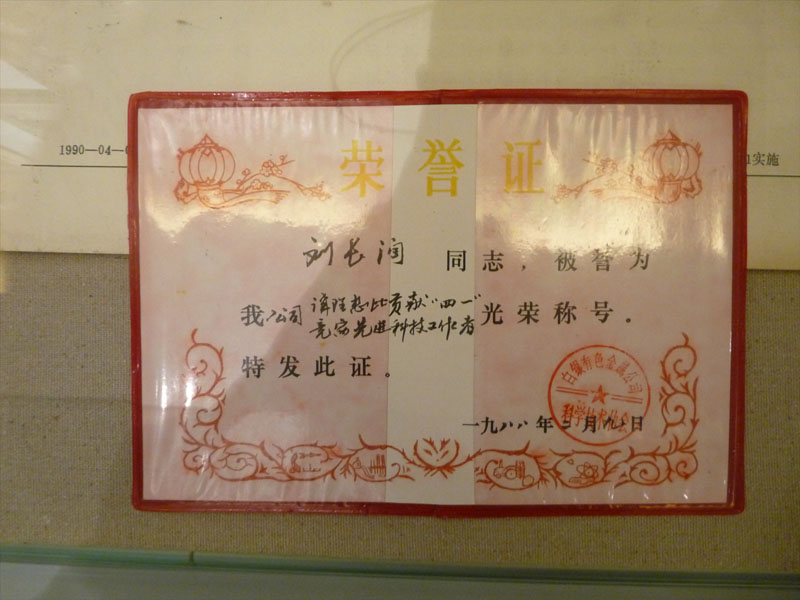 1990—04—0
实施
荣誉证
刘长润 同志，被誉为
我公司 讲理想比贡献“四一”
竞赛先进科技工作者 光荣称号。
特发此证。
白银有色金属公司
科学技术协会
一九八八年二月 日